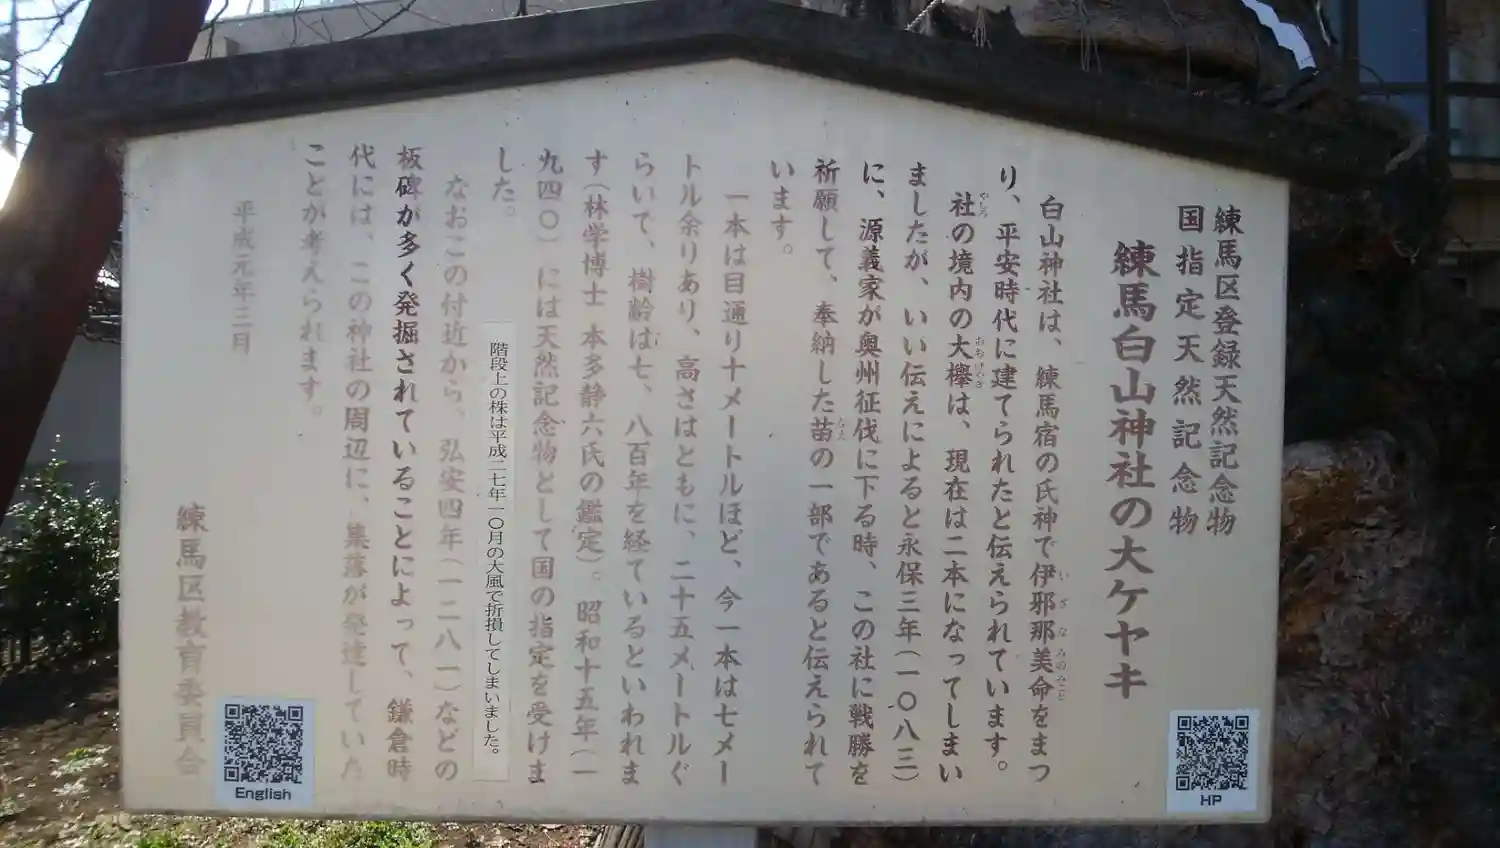 練馬区登録天然記念物
国指定天然記念物
練馬白山神社の大ケヤキ
白山神社は、練馬宿の氏神で伊邪那美命をまつ
いざなみのみこと
り、平安時代に建てられたと伝えられています。
社の境内の大欅は、現在は二本になってしまい
やしろ
おおけやき
ましたが、いい伝えによると永保三年(一〇八三)
に、源義家が奥州征伐に下る時、この社に戦勝を
祈願して、奉納した苗の一部であると伝えられて
なえ
います。
一本は目通り十メートルほど、今一本は七メー
トル余りあり、高さはともに、二十五メートルぐ
らいで、樹齢は七、八百年を経ているといわれま
す(林学博士 本多静六氏の鑑定)。昭和十五年(一
九四〇)には天然記念物として国の指定を受けま
した。
階段上の株は平成二七年一〇月の大風で折損してしまいました。
なおこの付近から、弘安四年(一二八一)などの
板碑が多く発掘されていることによって、鎌倉時
代には、この神社の周辺に、集落が発達していた
ことが考えられます。
平成元年三月
練馬区教育委員会
English
HP